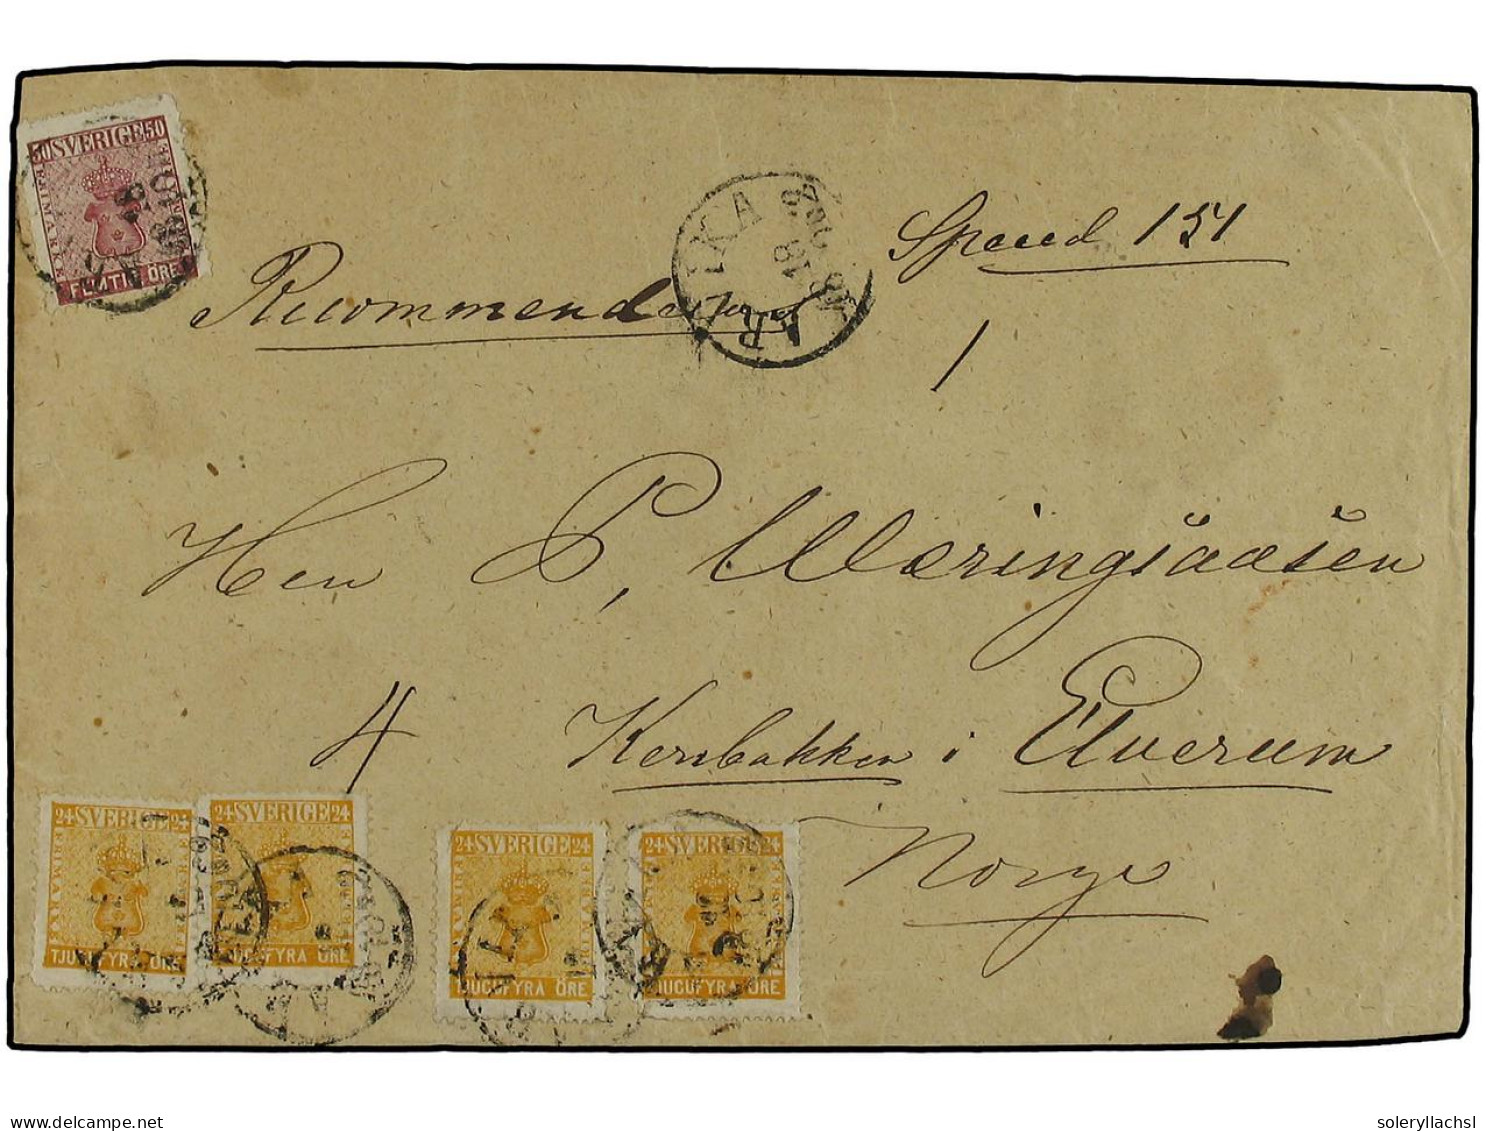 50 SVERIGE 50
FRIMÄRKE
FEMTIO ÖRE
ARVIKA
18
Recommenderas
1
Herr P. Wæringsaasen
4
Kernbakken i Elverum
Norge
24 SVERIGE 24
FRIMÄRKE
TJUGUFYRA ÖRE
24 SVERIGE 24
TJUGUFYRA ÖRE
24 SVERIGE 24
FRIMÄRKE
TJUGUFYRA ÖRE
24 SVERIGE 24
TJUGUFYRA ÖRE
delcampe.net
soleryllachsl